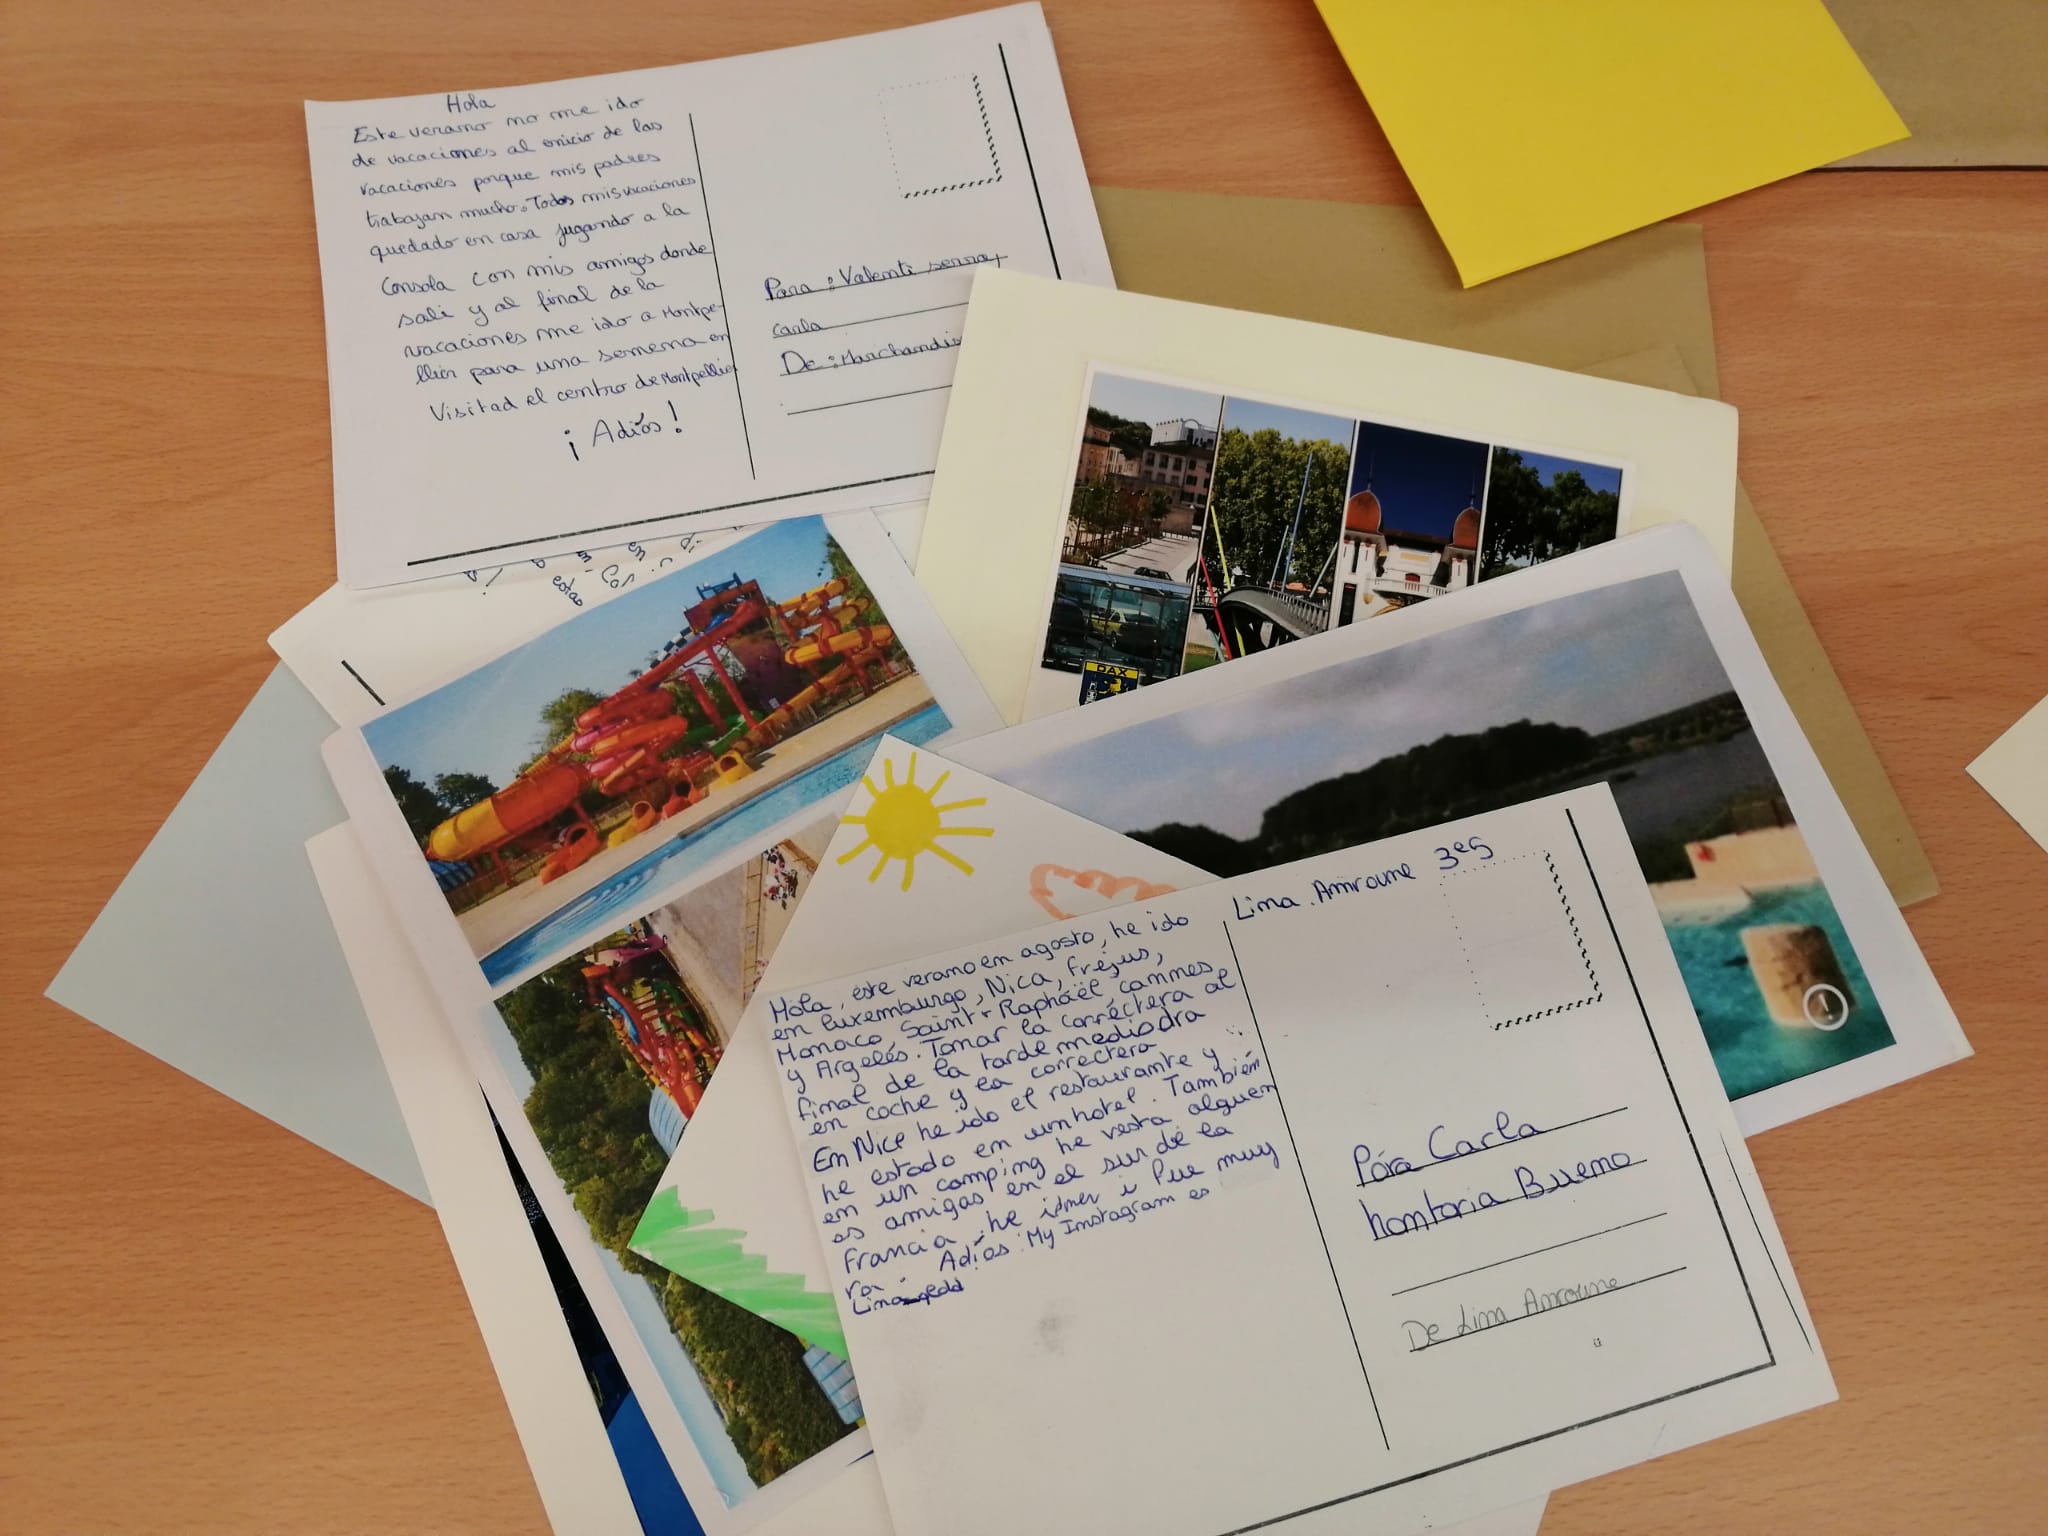 Hola
Este verano no me ido
de vacaciones al inicio de las
vacaciones porque mis padres
trabajan mucho. Todos mis vacaciones
quedado en casa jugando a la
Consola con mis amigos donde
sali y al final de la
vacaciones me ido a Montpe-
llier para una semena en
Visitad el centro de Montpellier
¡Adiós!
Para : Valenti serray
carla
De : Marchandis
en di
estas
DAX
Lima Amroune 3e5
Hola, este verano en agosto, he ido
en luxemburgo, Nica, fréjus,
Monaco, Saint-Raphaël, cannes
y Argelés. Tomar la corréctera al
final de la tarde mediodra
en coche y la correctera
En Nice he ido el restaurante y
he estado en un hotel. También
en un camping he vesta alguen
os amigas en el sur de la
Francia, he isner i Pue muy
ra. Adíos : My Instagram es
Lima
Pára Carla
hontoria Bueno
De Lima Amroune